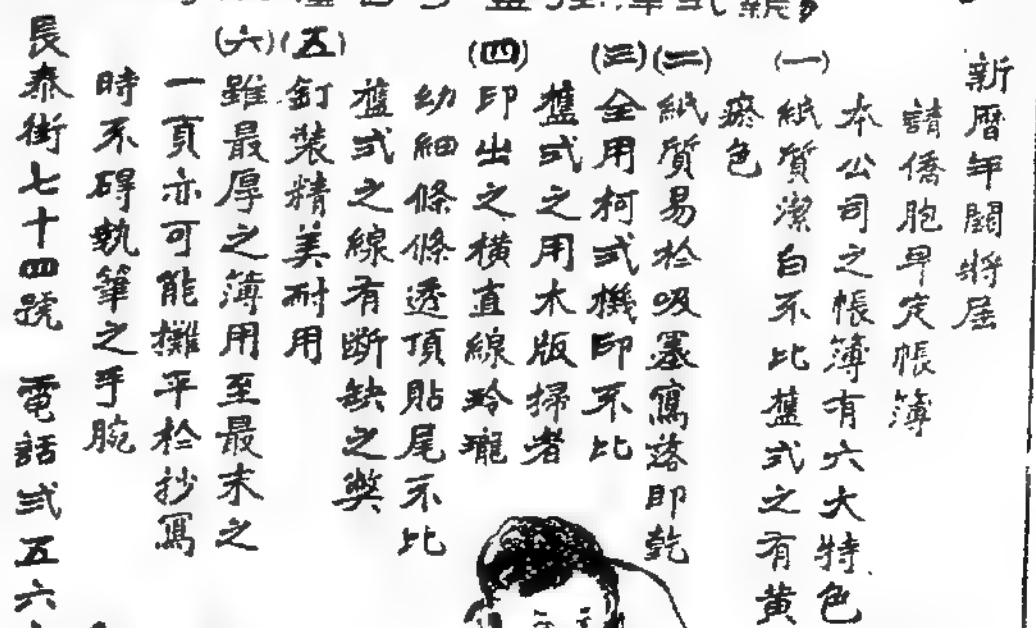 新曆年關將屆
請僑胞早定帳簿
本公司之帳簿有六大特色
(一)紙質潔白不比舊式之有黃
瘀色
(二)紙質易於吸墨寫落即乾
(三)全用柯式機印不比
舊式之用木版掃者
(四)印出之橫直線玲瓏
幼細條條透頂貼尾不比
舊式之線有斷缺之獘
(五)釘裝精美耐用
(六)雖最厚之簿用至最末之
一頁亦可能攤平於抄寫
時不碍執筆之手腕
長泰街七十四號 電話弍五六